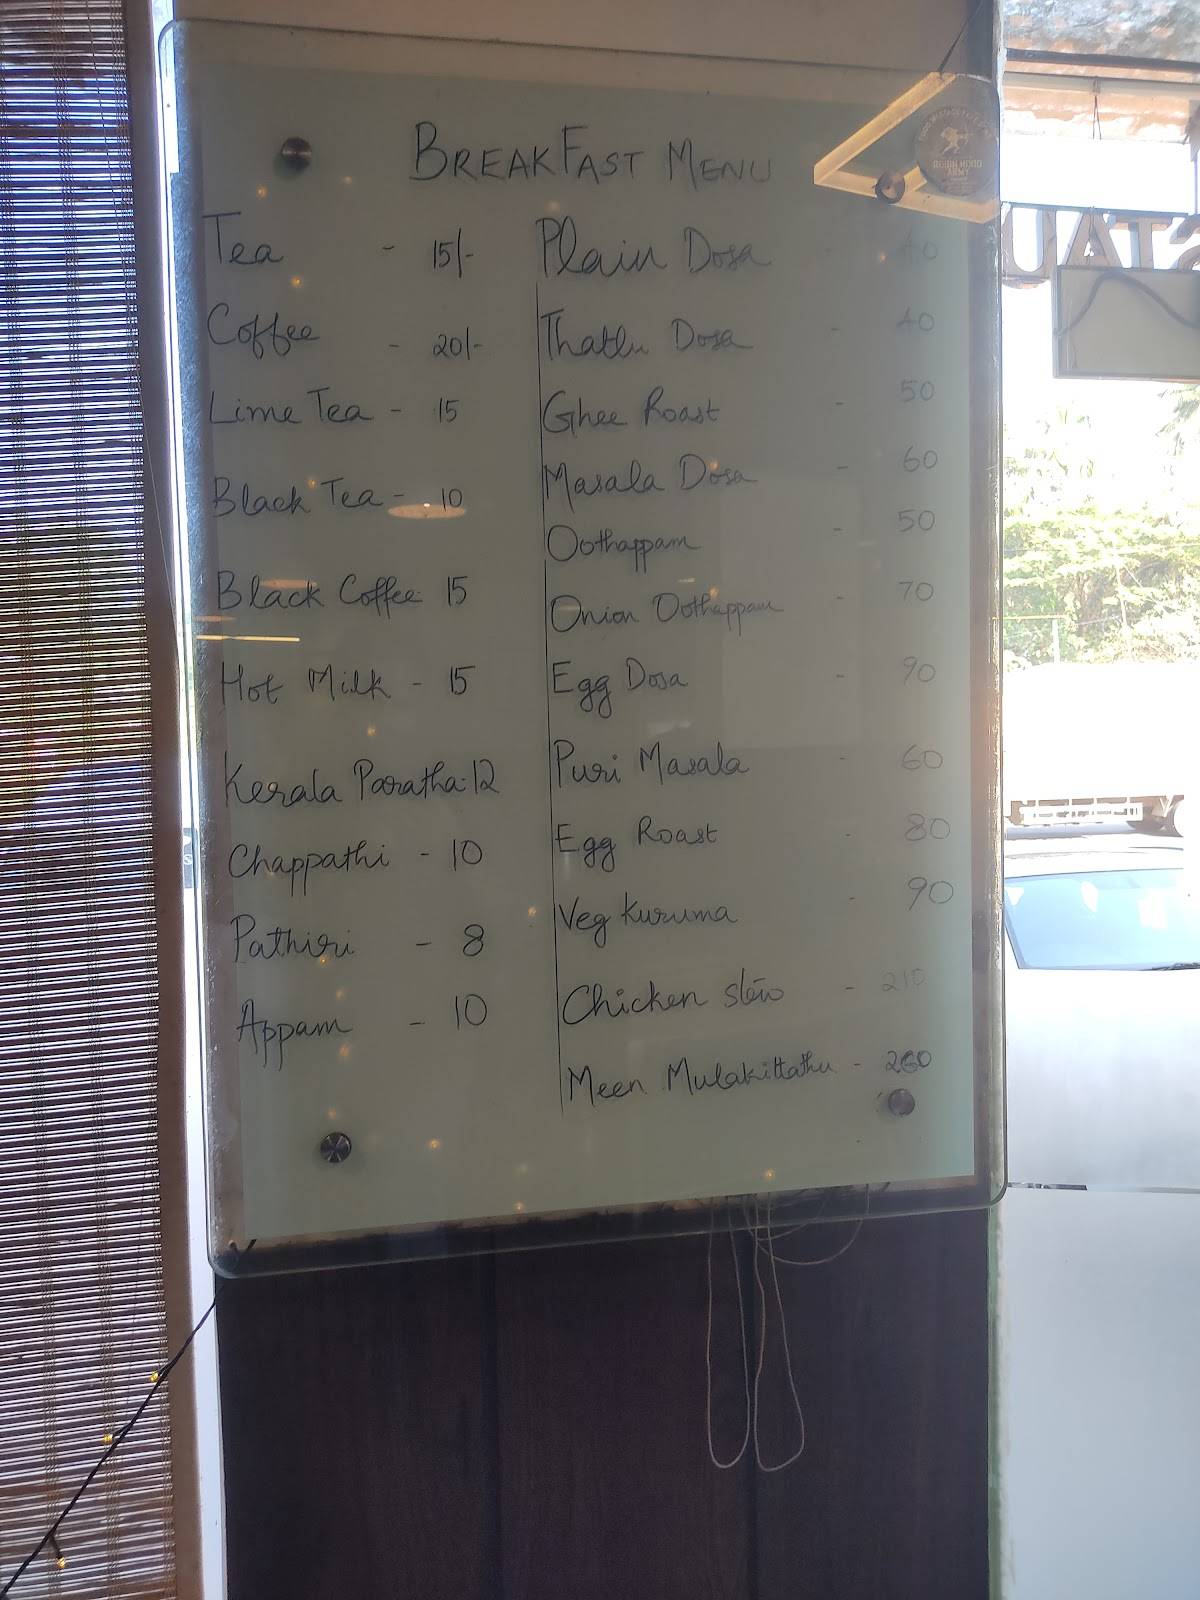 BREAKFAST MENU
Tea - 15/-
Coffee - 20/-
Lime Tea - 15
Black Tea - 10
Black Coffee 15
Hot Milk - 15
Kerala Paratha - 12
Chappathi - 10
Pathiri - 8
Appam - 10
Plain Dosa 40
Thattu Dosa - 40
Ghee Roast - 50
Masala Dosa - 60
Oothappam - 50
Onion Oothappam - 70
Egg Dosa - 90
Puri Masala - 60
Egg Roast - 80
Veg Kuruma - 90
Chicken Stew - 210
Meen Mulakittathu - 260
ROBIN HOOD
ARMY